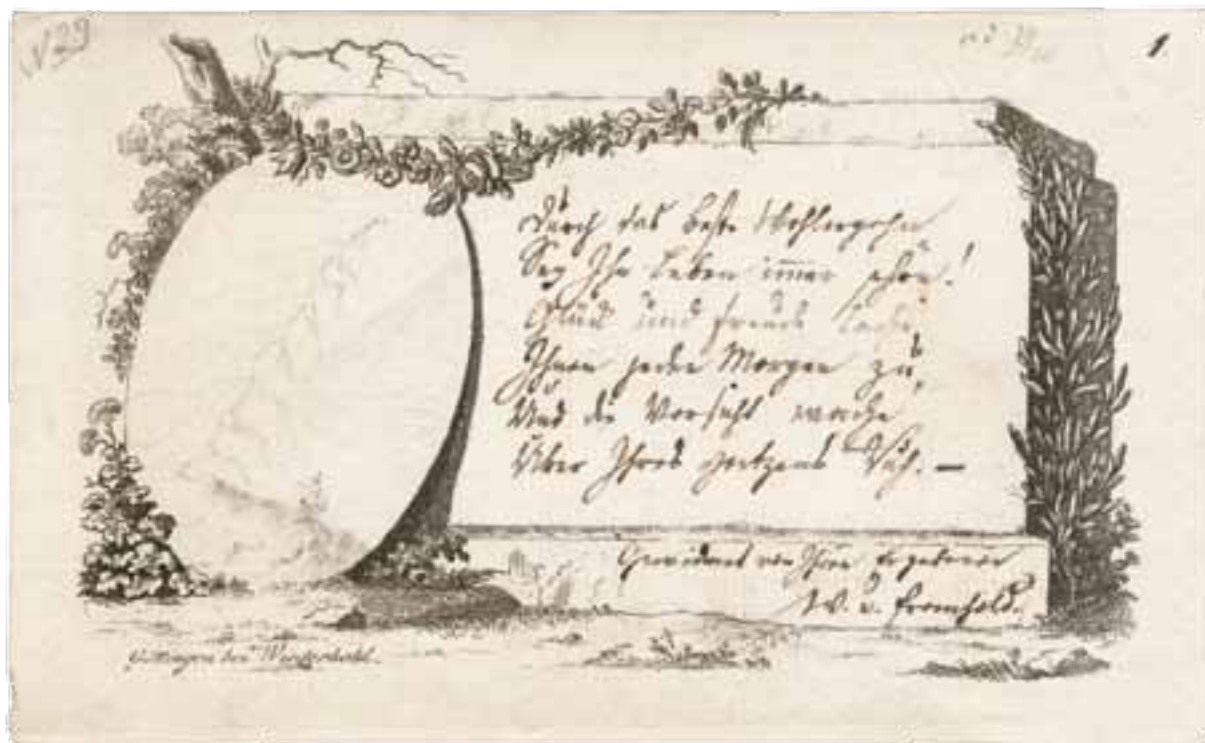 N 29
1
Durch das beste Wohlergehn
Sey Ihr Leben immer schön!
Glück und Freude lache
Ihnen jeden Morgen zu,
Und die Vorsicht wache
Über Ihres Hertzens Ruh. —
Gewidmet von Ihrem Ergebenen
W. v. Fromhold.
Göttingen bey Wiederhold.